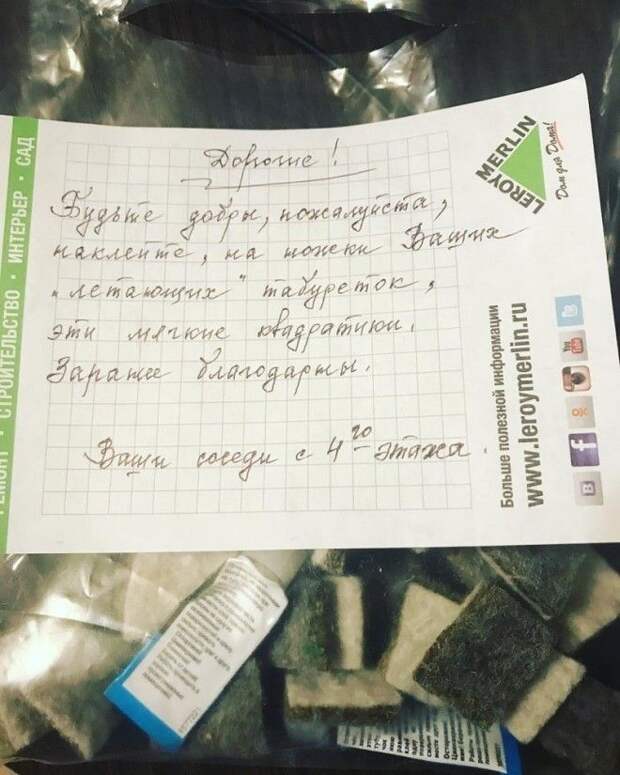 Дорогие!
Будьте добры, пожалуйста,
наклейте, на ножки Ваших
"летающих" табуреток,
эти мягкие квадратики.
Заранее благодарны.
Ваши соседи с 4го этажа.
LEROY MERLIN
Дом для Дома!
СТРОИТЕЛЬСТВО • ИНТЕРЬЕР • САД
Больше полезной информации
www.leroymerlin.ru
You Tube
f
B